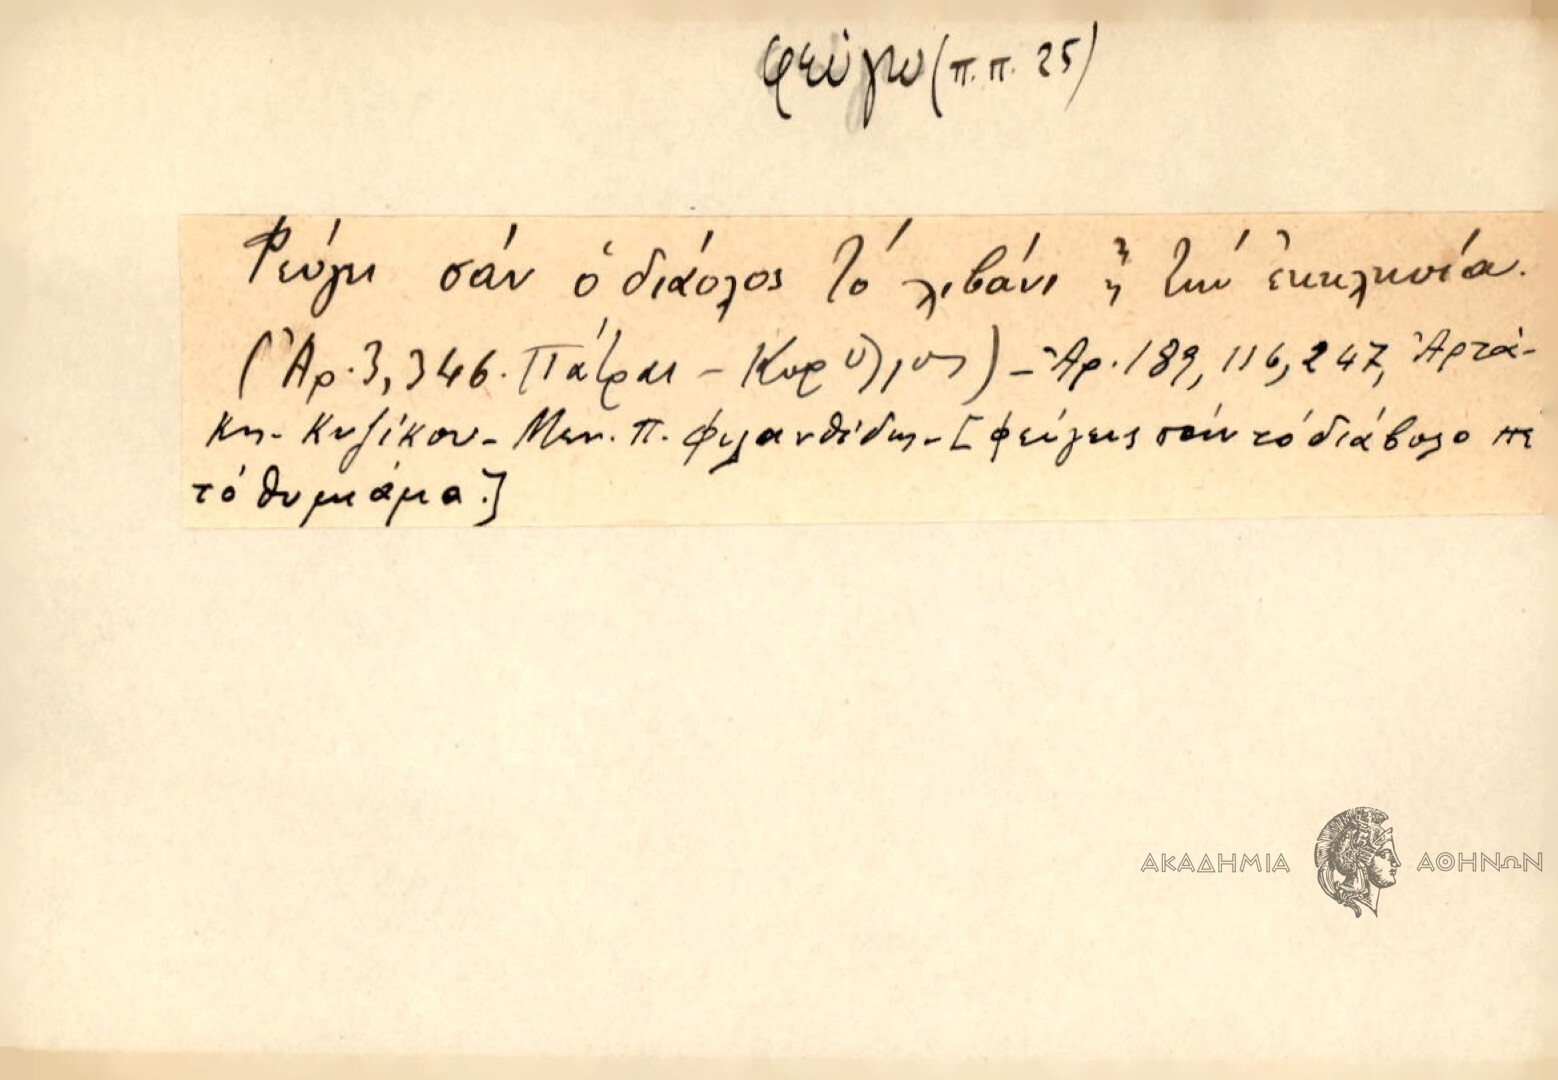 φεύγω (π.π. 25)
Φεύγει σάν ὁ διάολος τό λιβάνι ἤ τήν ἐκκλησία.
(Ἀρ. 3, 346. Πάτραι – Κορύλλος) – Ἀρ. 189, 116, 247, Ἀρτά-
κη - Κυζίκου - Μεν. Π. Φιλανθίδης - [φεύγεις σάν τό διάβολο πὲ
τό θυμιάμα.]
ΑΚΑΔΗΜΙΑ ΑΘΗΝΩΝ